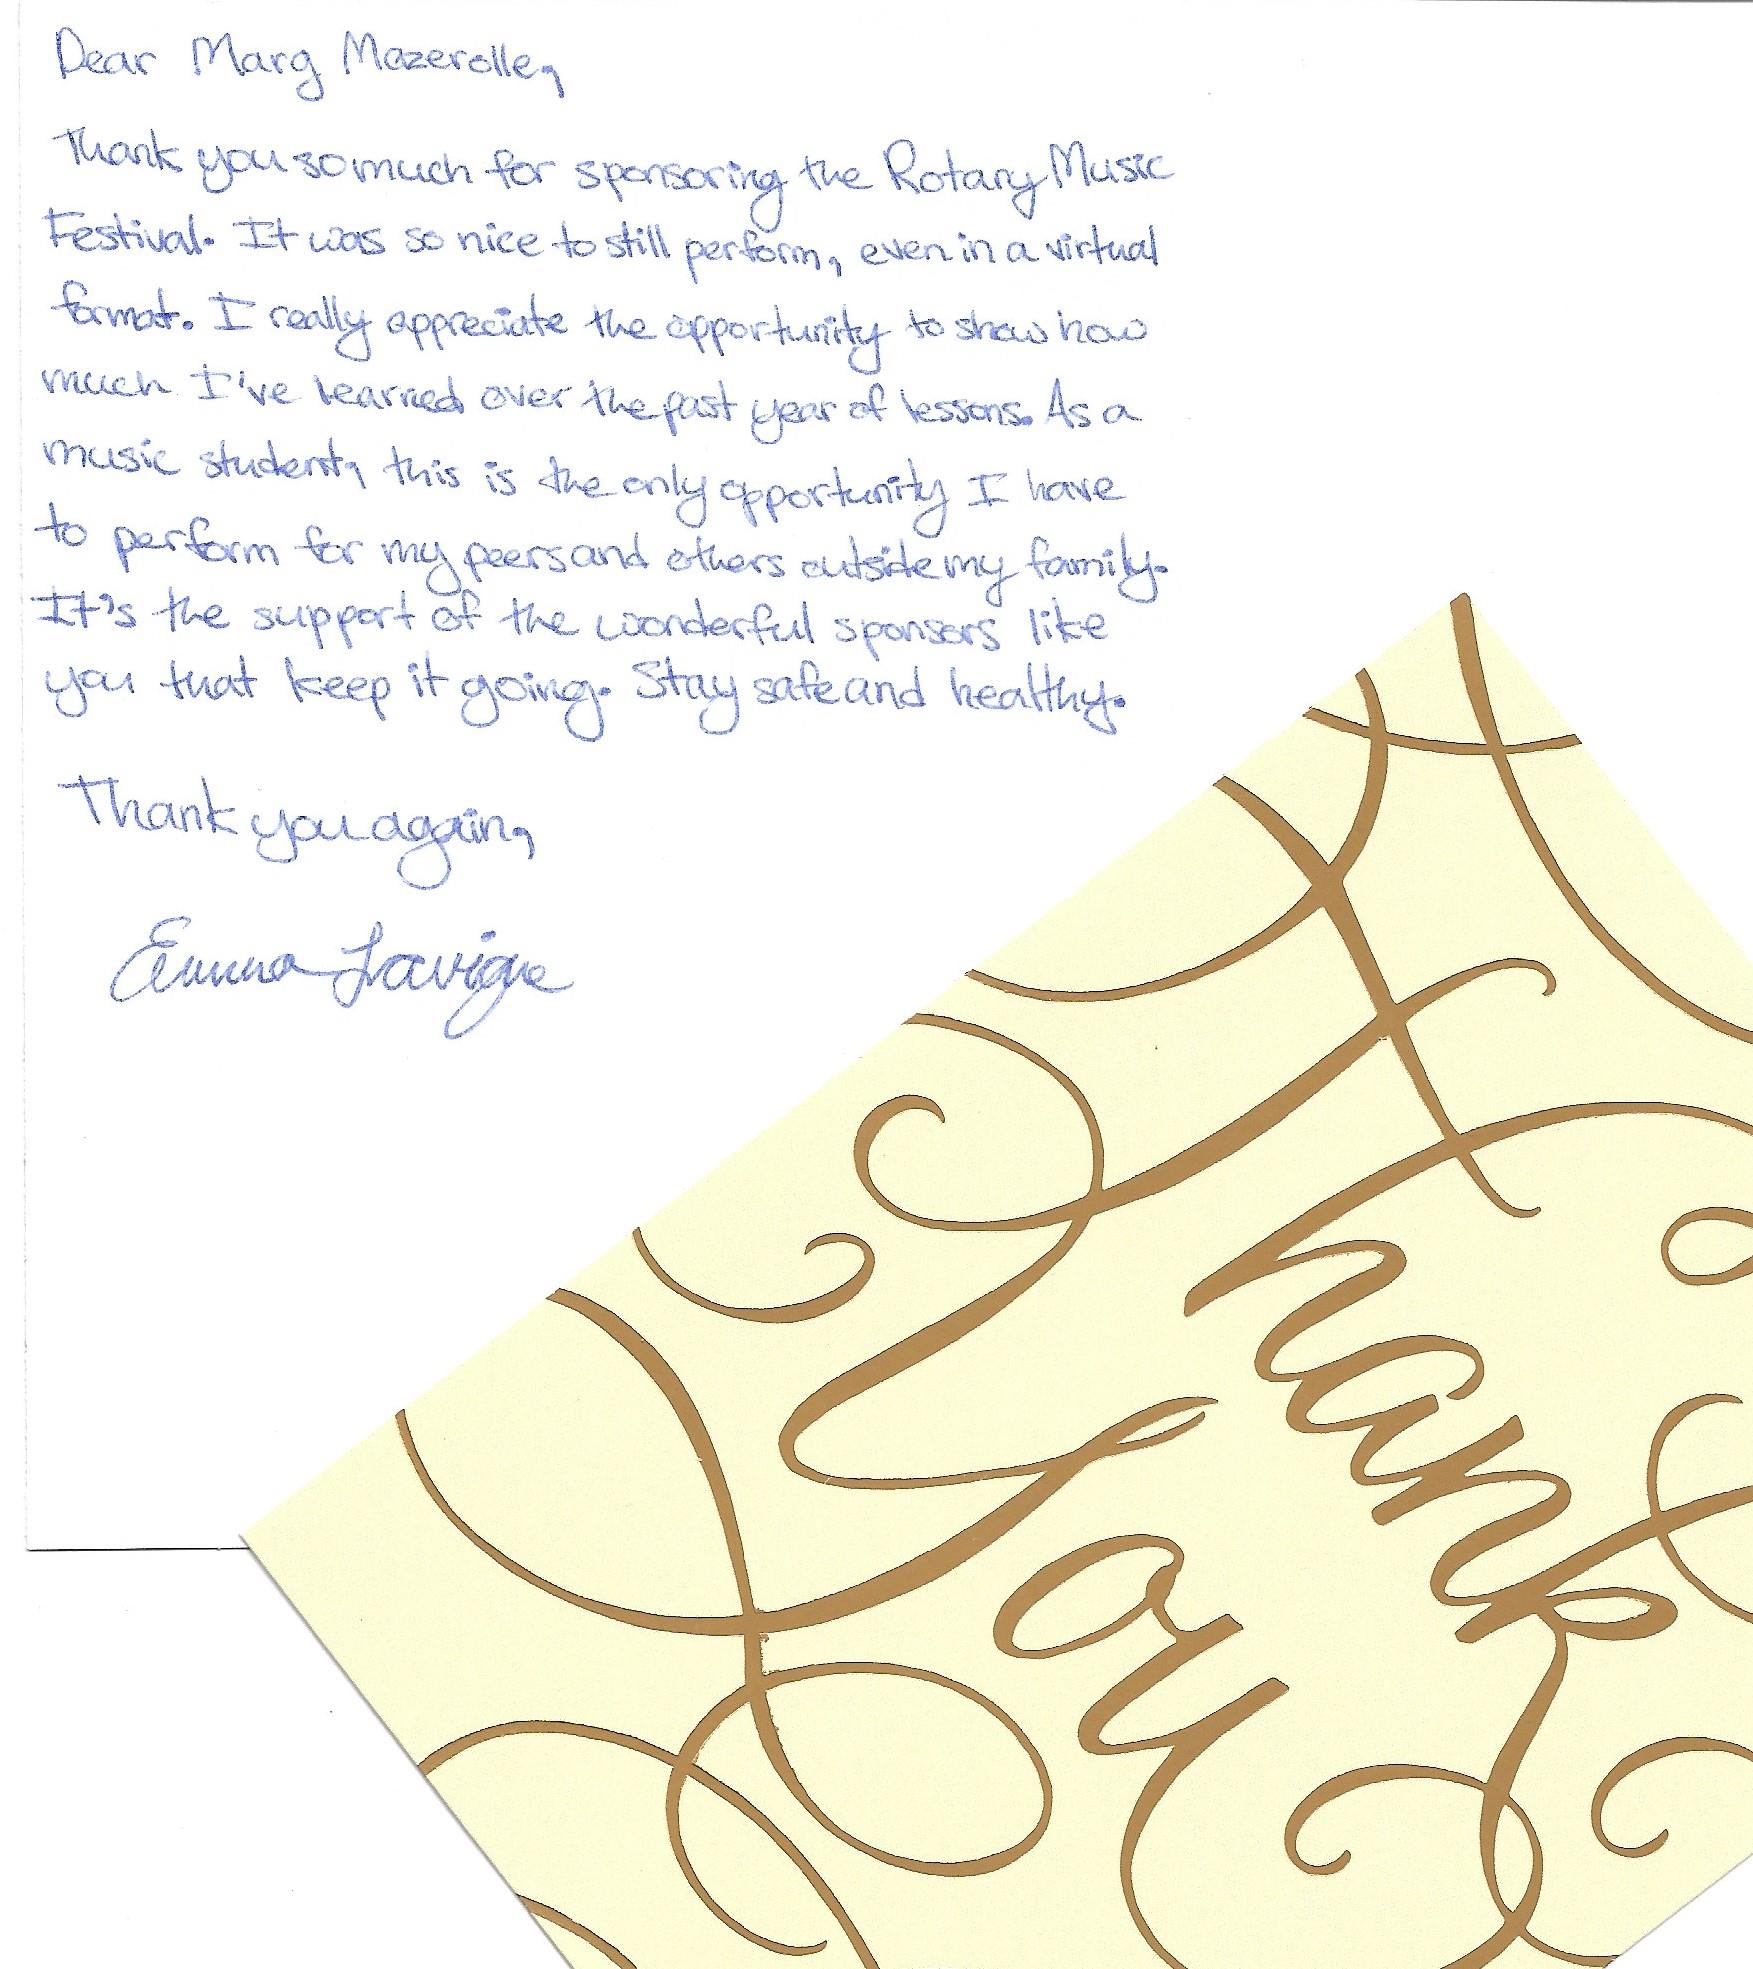 Dear Marg Mazerolle,
Thank you so much for sponsoring the Rotary Music
Festival. It was so nice to still perform, even in a virtual
format. I really appreciate the opportunity to show how
much I've learned over the past year of lessons. As a
music student, this is the only opportunity I have
to perform for my peers and others outside my family.
It's the support of the wonderful sponsors like
you that keep it going. Stay safe and healthy.
Thank you again,
Emma Lavigne
Thank
you